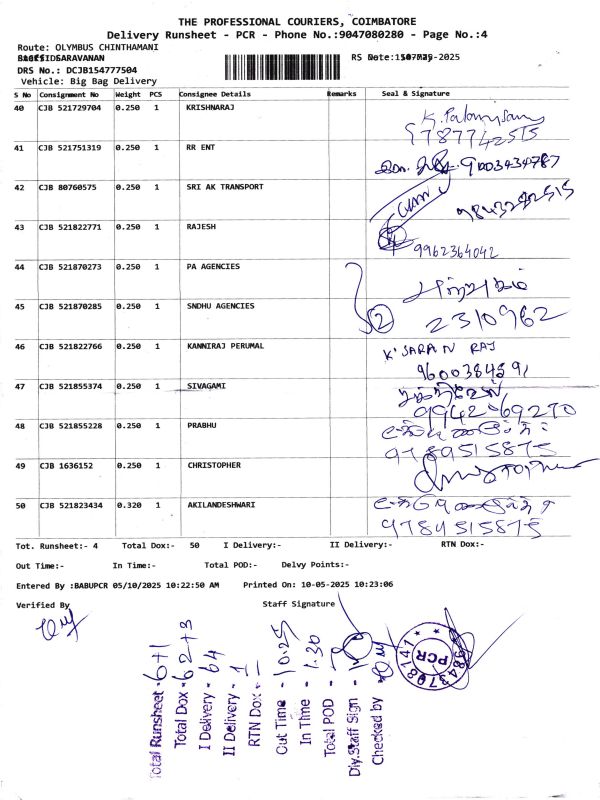 THE PROFESSIONAL COURIERS, COIMBATORE
Delivery Runsheet - PCR - Phone No.:9047080280 - Page No.:4
Route: OLYMBUS CHINTHAMANI
SARAVANAN
RS Date:
-2025
DRS No.: DCJB154777504
Vehicle: Big Bag Delivery
S No Consignment No Weight PCS Consignee Details Remarks Seal & Signature
40 CJB 521729704 0.250 1 KRISHNARAJ
9787742515
41 CJB 521751319 0.250 1 RR ENT
9003434787
42 CJB 80760575 0.250 1 SRI AK TRANSPORT
43 CJB 521822771 0.250 1 RAJESH
9962364042
44 CJB 521870273 0.250 1 PA AGENCIES
45 CJB 521870285 0.250 1 SNDHU AGENCIES
2 2310962
46 CJB 521822766 0.250 1 KANNIRAJ PERUMAL K'SARAN RAJ
9600384591
47 CJB 521855374 0.250 1 SIVAGAMI
9942069270
48 CJB 521855228 0.250 1 PRABHU
9789515875
49 CJB 1636152 0.250 1 CHRISTOPHER
50 CJB 521823434 0.320 1 AKILANDESHWARI
Tot. Runsheet:- 4 Total Dox:- 50 I Delivery:- II Delivery:- RTN Dox:-
Out Time:- In Time:- Total POD:- Delvy Points:-
Entered By :BABUPCR 05/10/2025 10:22:50 AM Printed On: 10-05-2025 10:23:06
Verified By Staff Signature
Total Runsheet - 6+1
Total Dox - 62+3
I Delivery - 64
II Delivery - 1
RTN Dox -
Out Time - 10.25
In Time - 1.30
Total POD -
Dly.Staff Sign -
Checked by
PCR